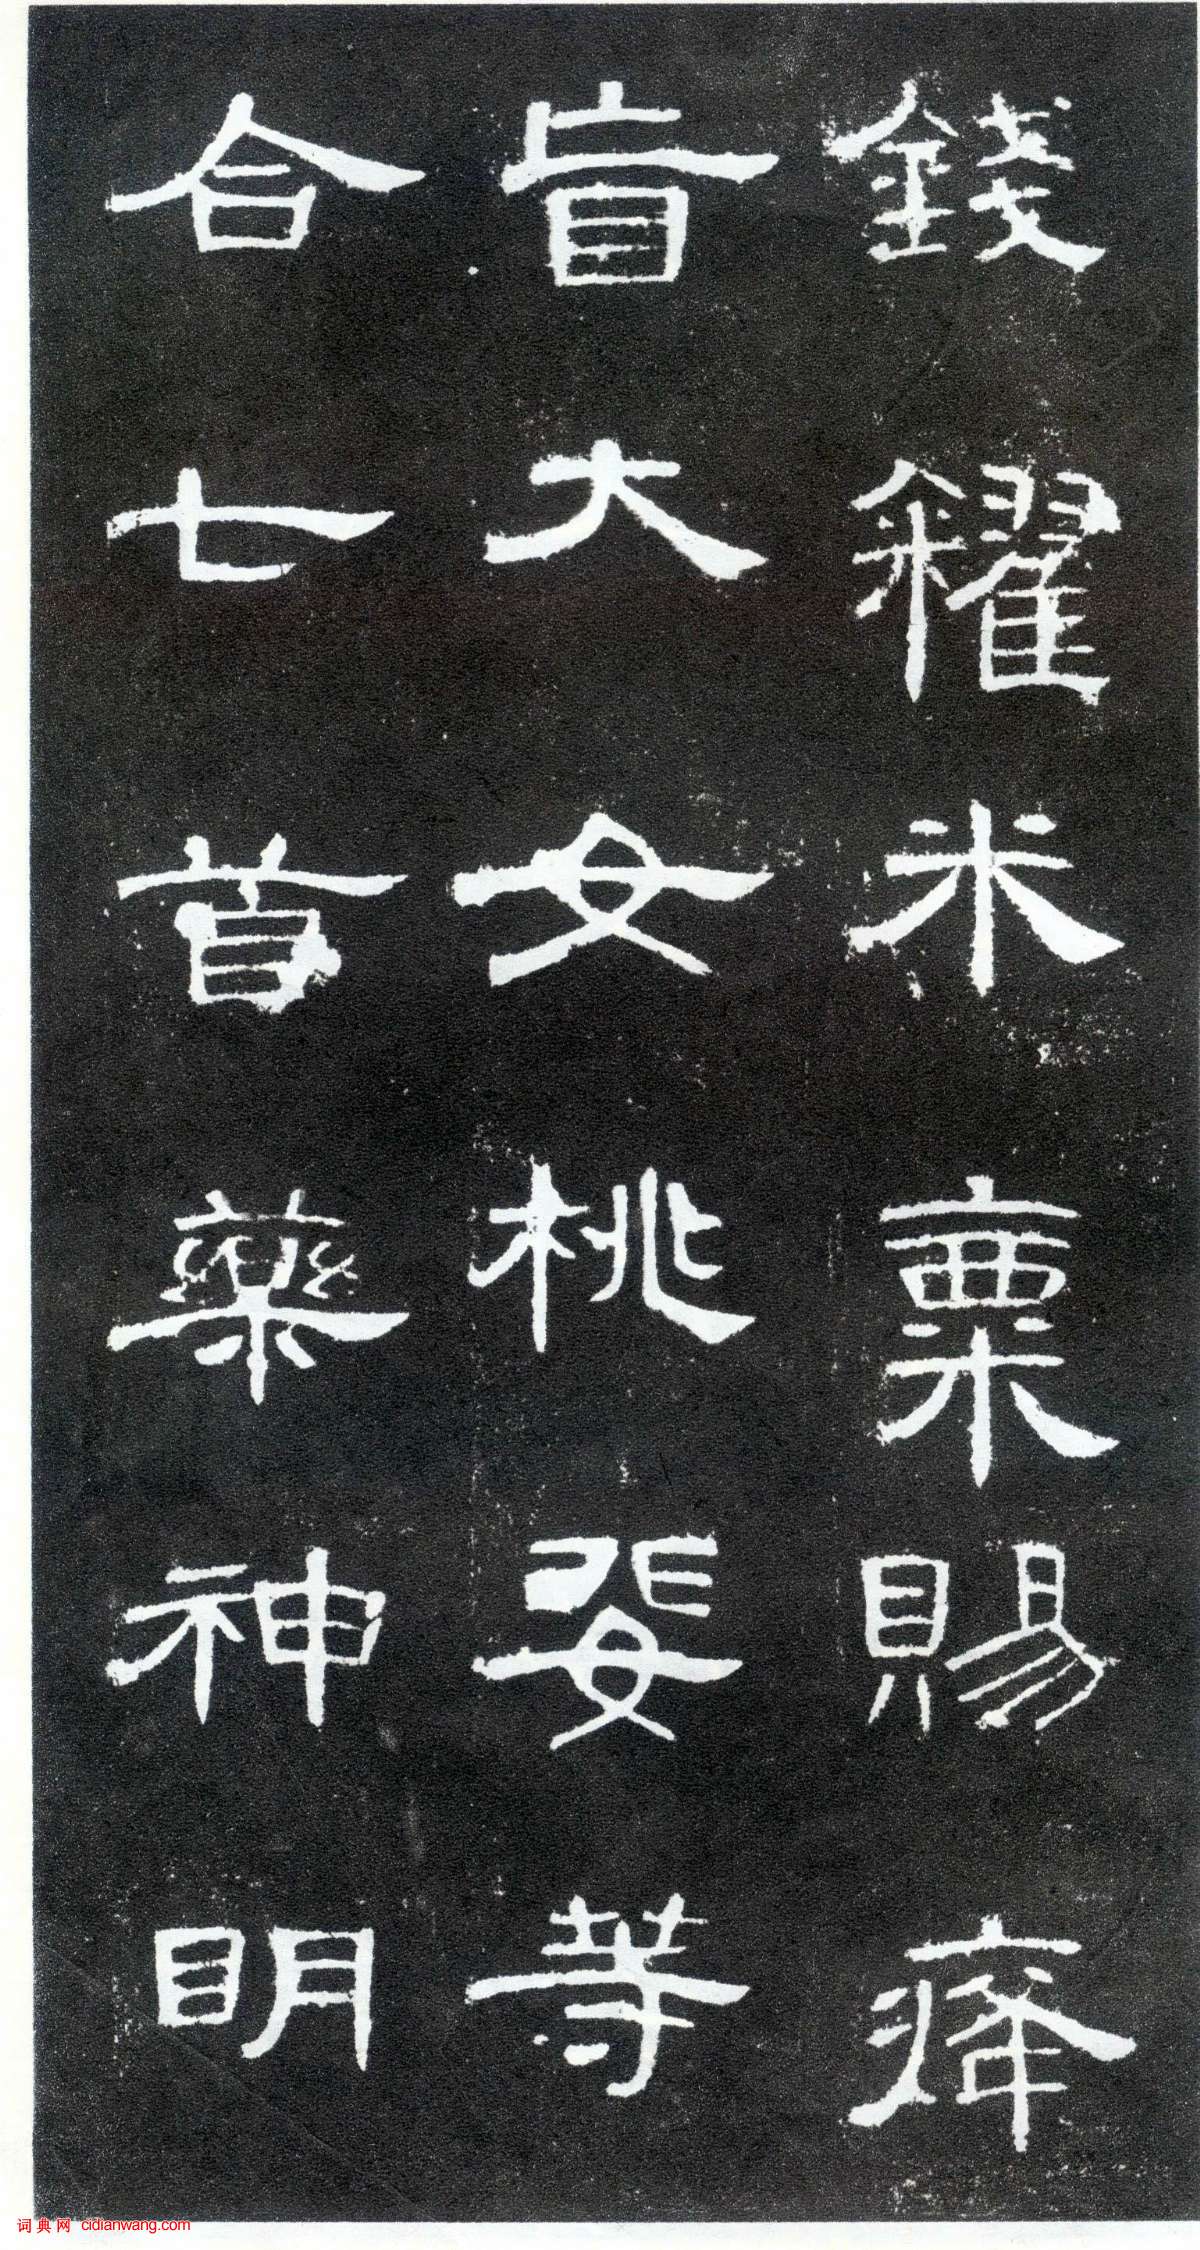 錢糴米粟賜𤸇
盲大女桃婓等
合七首藥神明
词典网 cidianwang.com